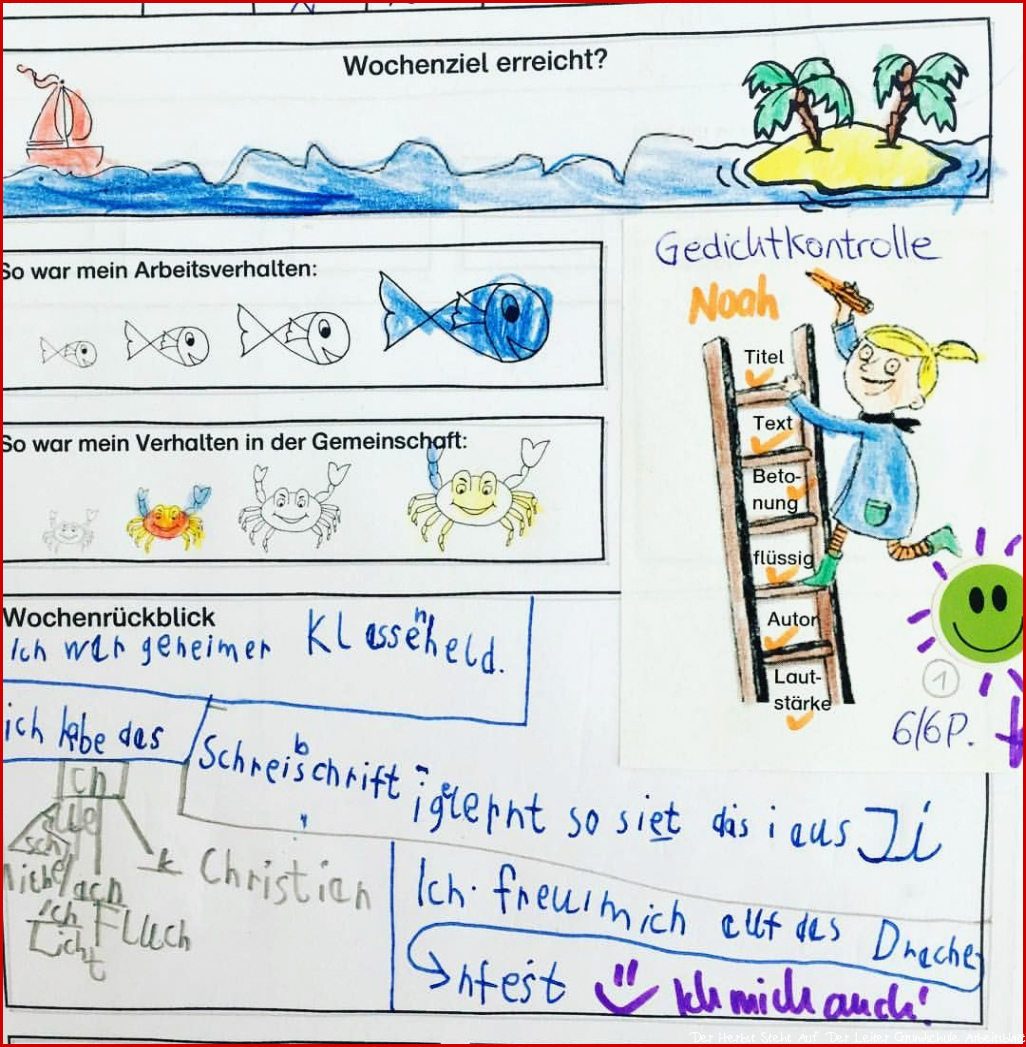 Wochenziel erreicht?
So war mein Arbeitsverhalten:
So war mein Verhalten in der Gemeinschaft:
Gedichtkontrolle
Noah
Titel
Text
Beto-
nung
flüssig
Autor
Laut-
stärke
1
6/6P.
Wochenrückblick
Ich war geheimer Klassenheld.
ich habe das
Schreibschrift i gelernt so siet das i aus Ii
Ch
sch
ach
ich
Licht
Fluch
k Christian
Ich freu mich auf das Drache
nfest
Ich mich auch!